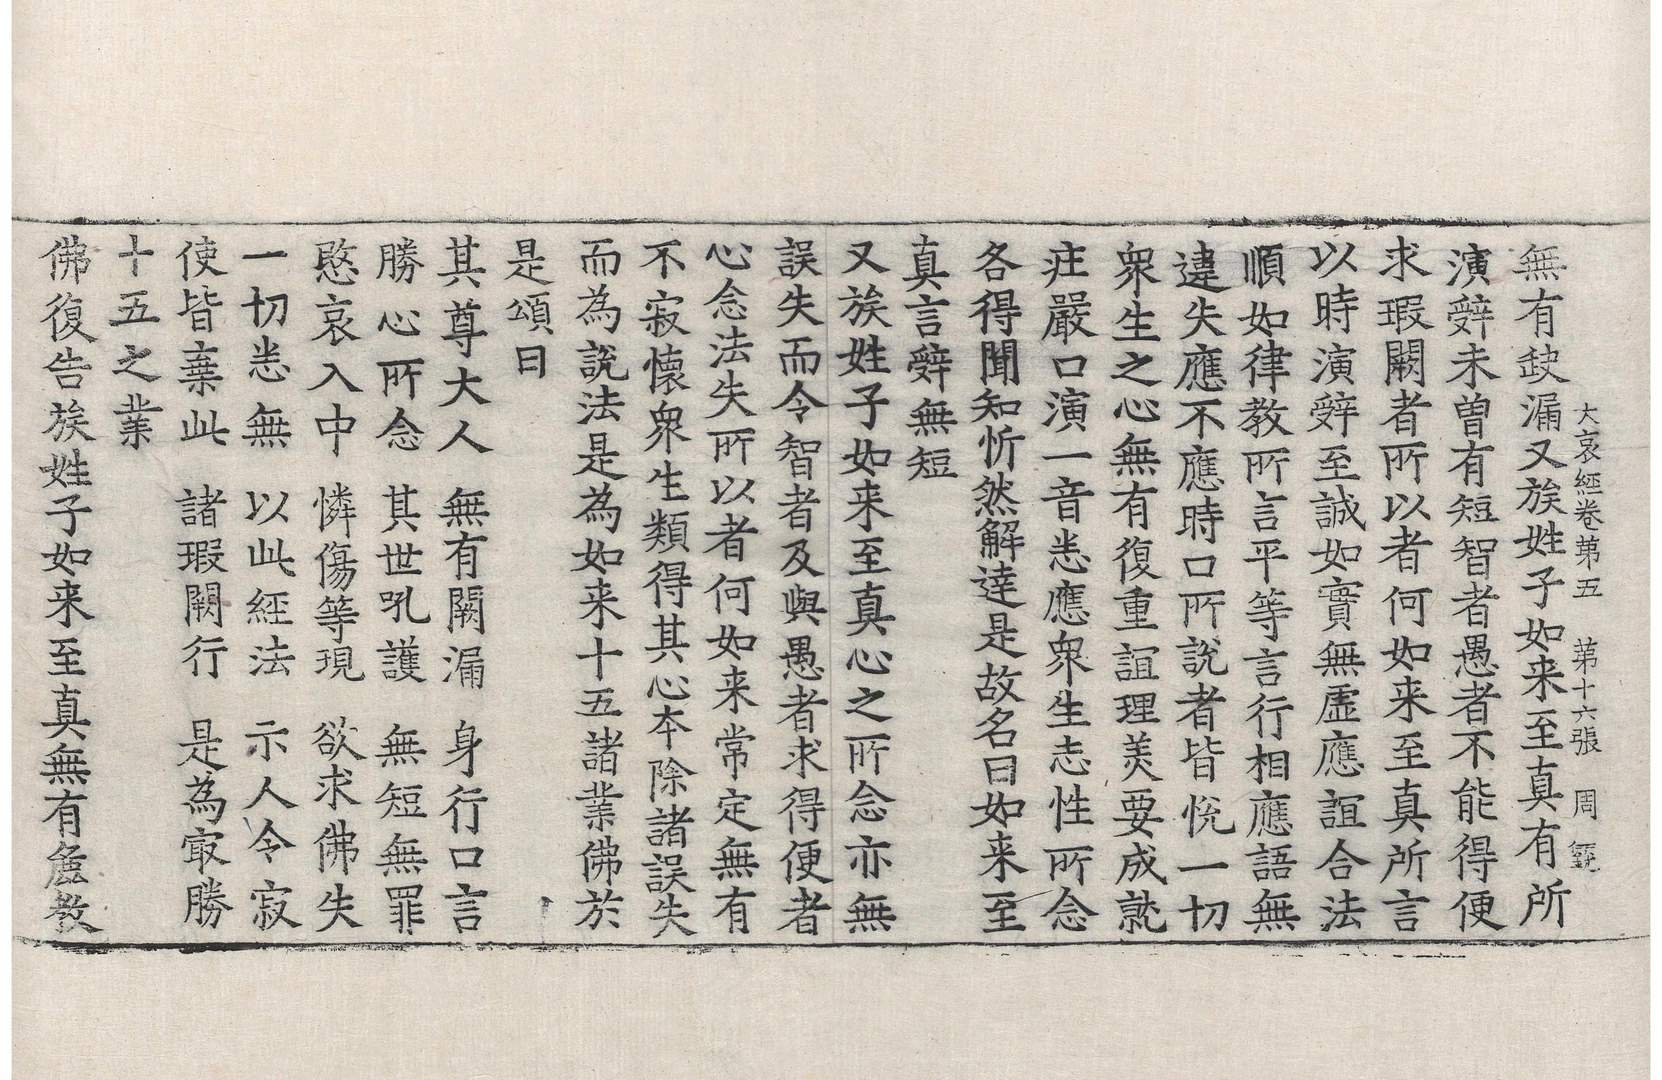 大哀經卷第五　第十六張　周
無有缺漏又族姓子如来至真有所
演辝未曽有短智者愚者不能得便
求瑕闕者所以者何如来至真所言
以時演辝至誠如實無虛應誼合法
順如律教所言平等言行相應語無
違失應不應時口所說者皆悅一切
衆生之心無有復重誼理羙要成就
莊嚴口演一音悉應衆生志性所念
各得聞知忻然解達是故名曰如来至
真言辝無短
又族姓子如来至真心之所念亦無
誤失而令智者及與愚者求得便者
心念法失所以者何如来常定無有
不寂懷衆生類得其心本除諸誤失
而為說法是為如来十五諸業佛於
是頌曰
其尊大人　無有闕漏　身行口言
勝心所念　其世吼護　無短無罪
愍哀入中　憐傷等現　欲求佛失
一切悉無　以此經法　示人令寂
使皆棄此　諸瑕闕行　是為㝡勝
十五之業
佛復告族姓子如来至真無有麁教